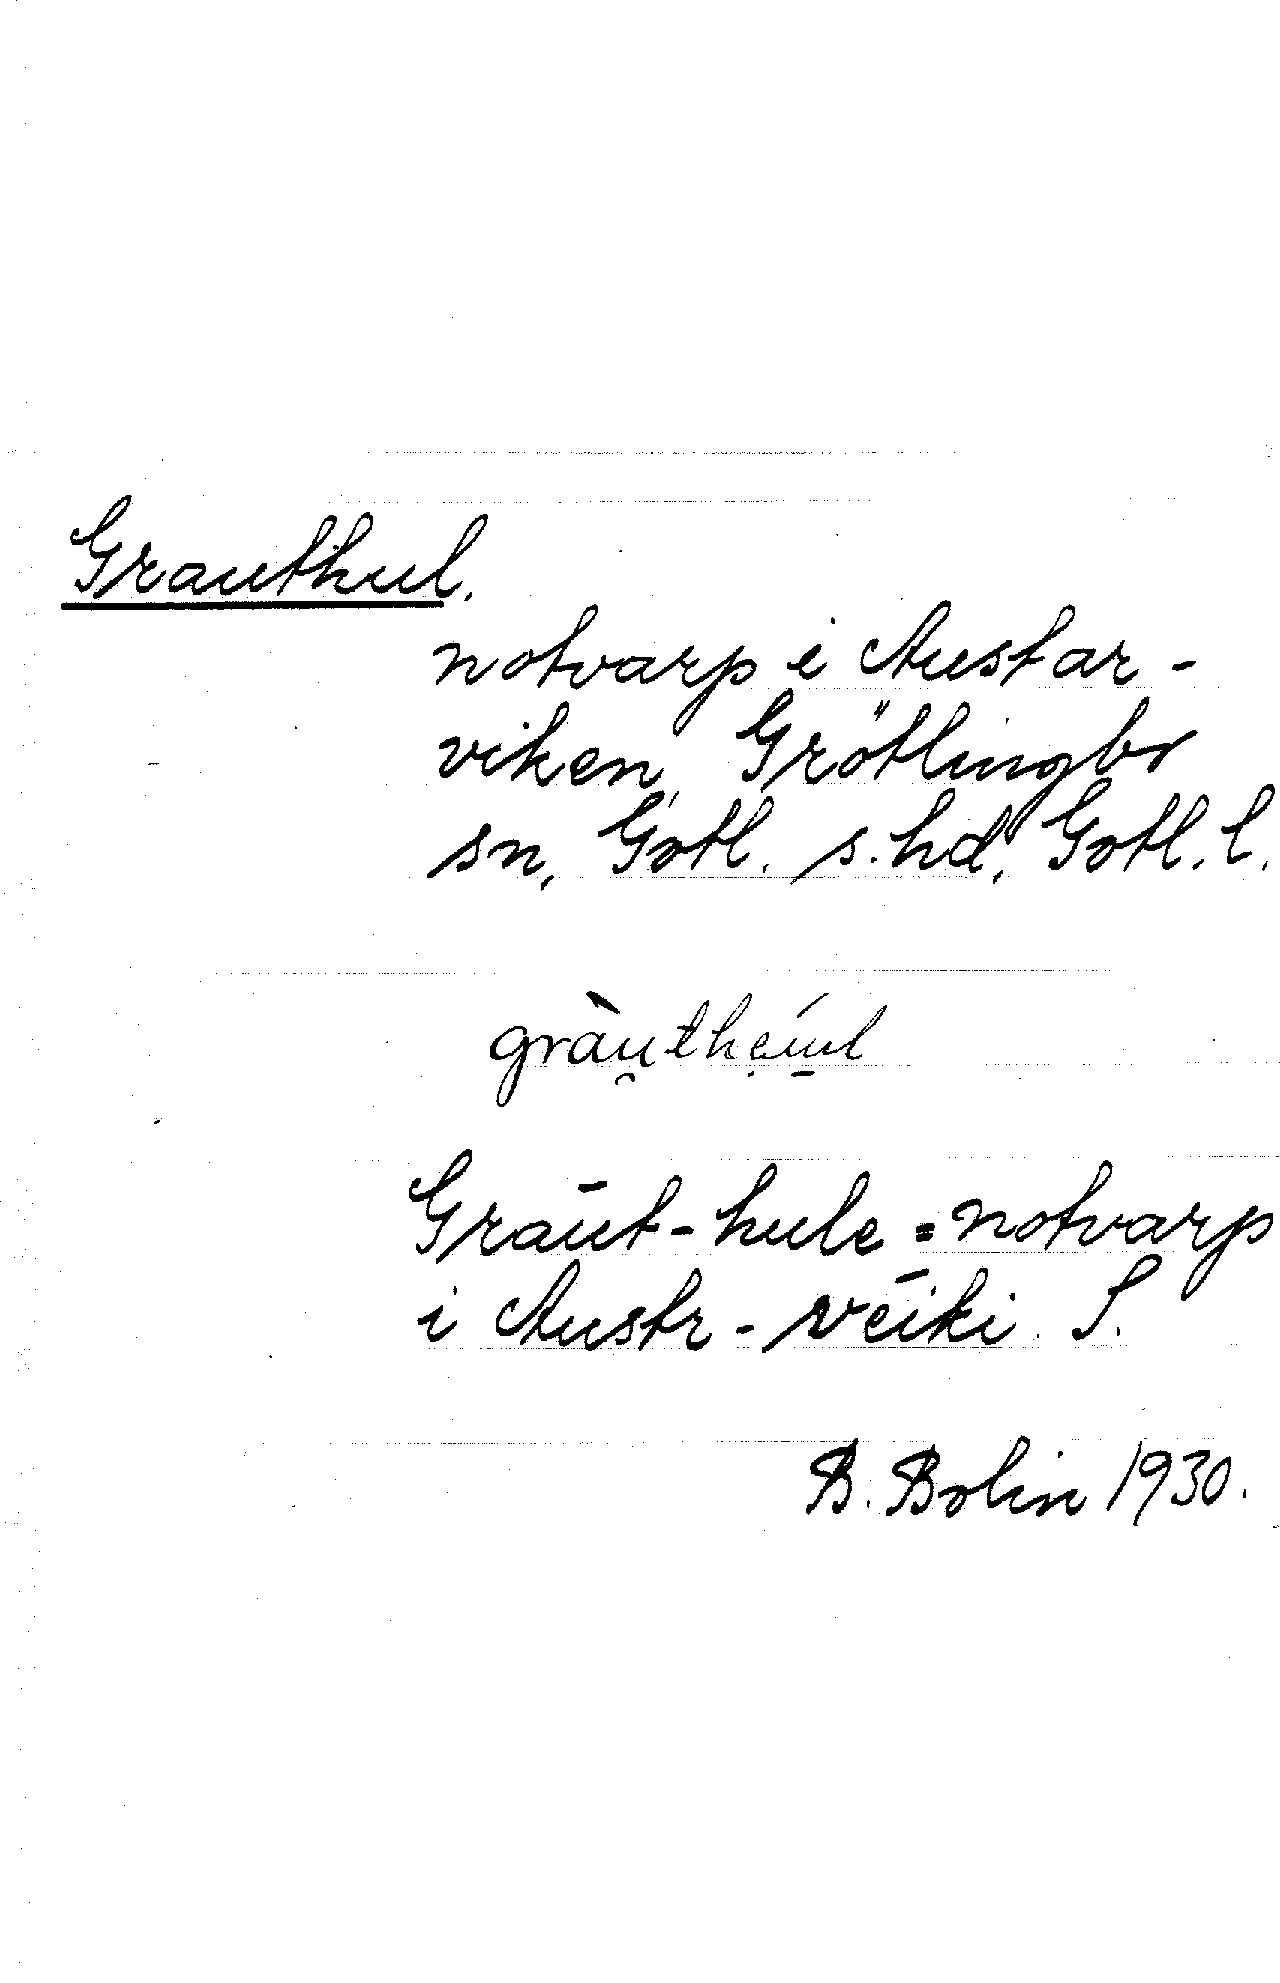 Grauthul.
notvarp i Austar-
viken, Grötlingbo
sn, Gotl. s. hd, Gotl. l.
Graūt-hule = notvarp
i Austr-vēiki. S.
B. Bolin 1930.